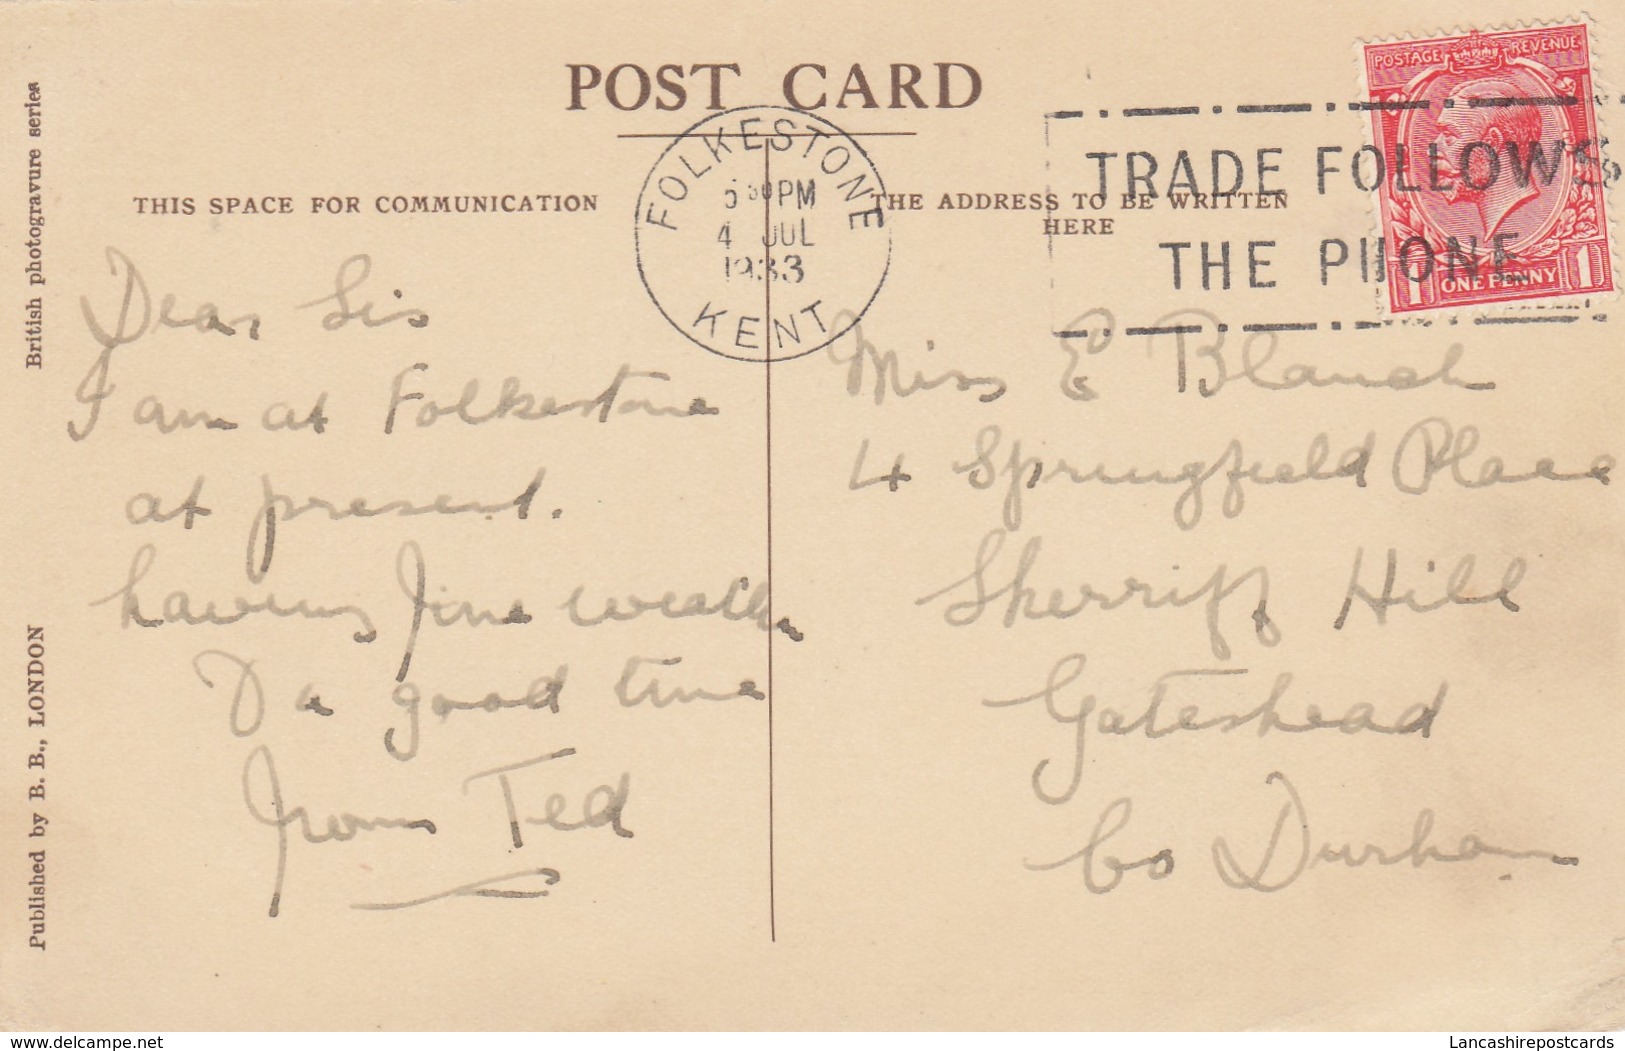 POST CARD
THIS SPACE FOR COMMUNICATION
THE ADDRESS TO BE WRITTEN
HERE
FOLKESTONE
5 30 PM
4 JUL
1933
KENT
TRADE FOLLOWS
THE PHONE
POSTAGE REVENUE
1 ONE PENNY 1
British photogravure series
Published by B. B., LONDON
Dear Sis
I am at Folkestone
at present.
having fine weather
& a good time
from Ted
Miss E Blanch
4 Springfield Place
Sherriff Hill
Gateshead
Co Durham
www.delcampe.net
Lancashirepostcards